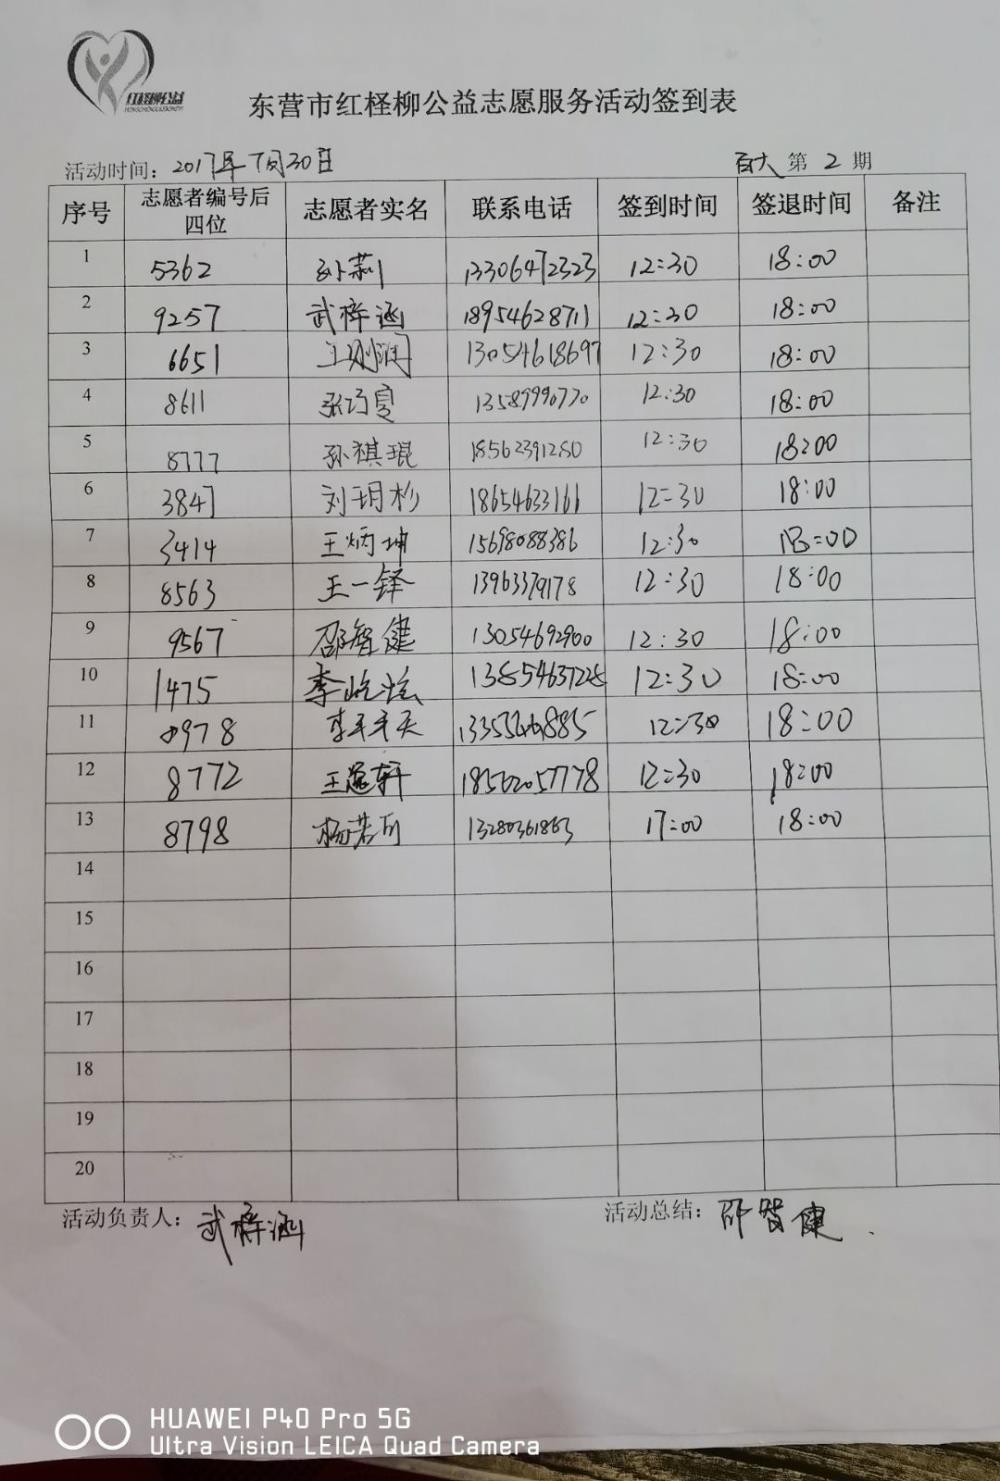 红柽柳公益
东营市红柽柳公益志愿服务活动签到表
活动时间：2017年7月30日 百大 第 2 期
序号 志愿者编号后四位 志愿者实名 联系电话 签到时间 签退时间 备注
1 5362 孙莉 13306472323 12:30 18:00
2 9257 武梓涵 18954628711 12:30 18:00
3 6651 王刚润 13054618697 12:30 18:00
4 8611 张巧宣 13589990770 12:30 18:00
5 8777 孙祺琨 18562391280 12:30 18:00
6 3847 刘玥杉 18654633161 12:30 18:00
7 3414 王炳坤 15698088386 12:30 18:00
8 8563 王一铎 13963379178 12:30 18:00
9 9567 邵智健 13054692900 12:30 18:00
10 1475 李屹泫 13854637228 12:30 18:00
11 0978 12:30 18:00
12 8772 王逸轩 18562057778 12:30 18:00
13 8798 杨若行 13280361863 17:00 18:00
14
15
16
17
18
19
20
活动负责人：武梓涵 活动总结：邵智健.
HUAWEI P40 Pro 5G
Ultra Vision LEICA Quad Camera